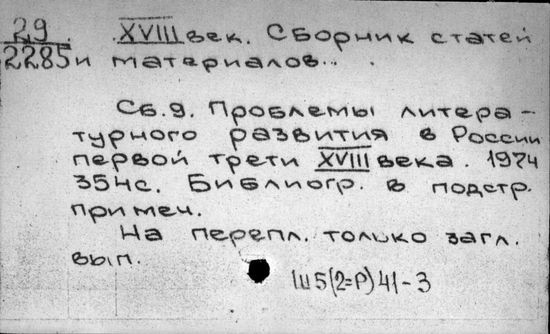 29
2285
XVIII век. Сборник статей
и материалов...
Сб. 9. Проблемы литера-
турного развития в России
первой трети XVIII века. 1974
354с. Библиогр. в подстр.
примеч.
На перепл. только загл.
вып.
Ш5(2=Р)41-3